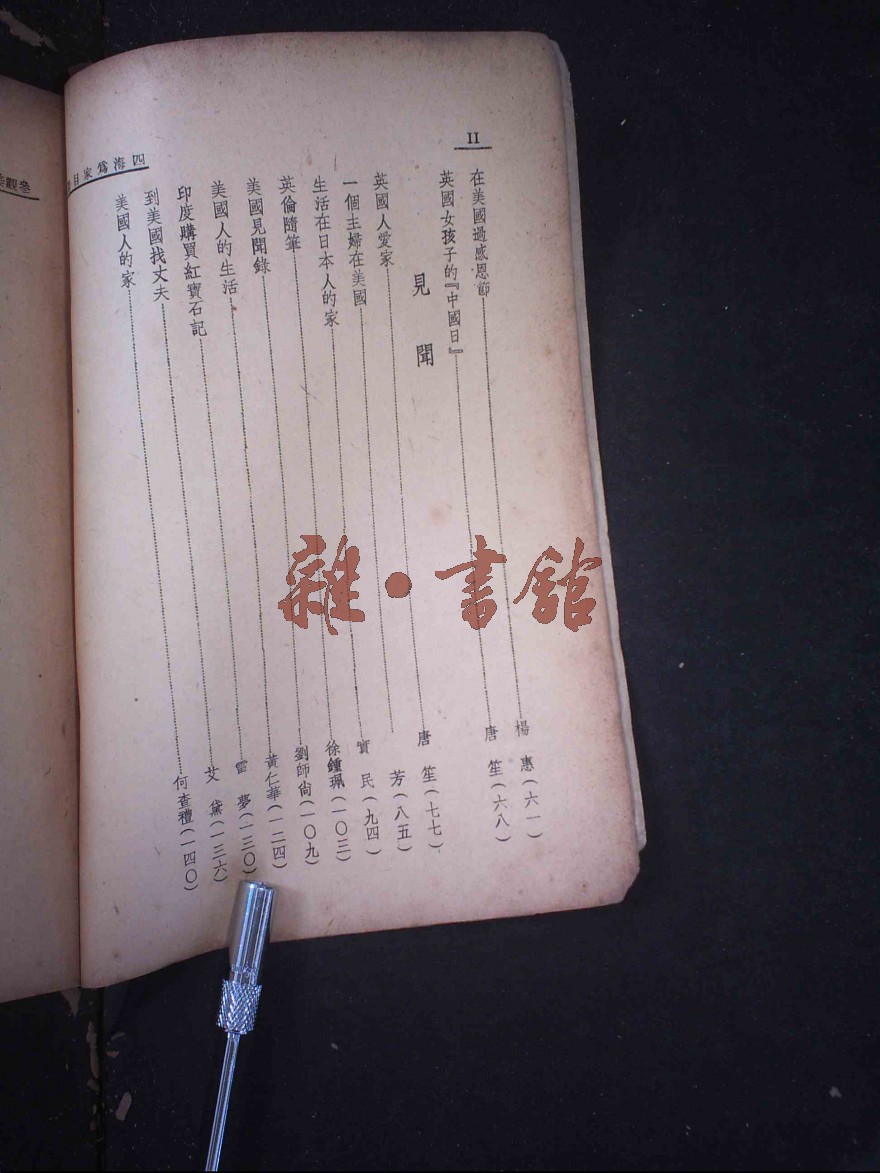 II
四海爲家目
在美國過感恩節……楊 惠(六一)
英國女孩子的『中國日』……唐 笙(六八)
見 聞
英國人愛家……唐 笙(七七)
一個主婦在美國……芳(八五)
生活在日本人的家……民(九四)
英倫隨筆……徐鍾珮(一〇三)
美國見聞錄……劉師尙(一〇九)
美國人的生活……黃仁華(一二四)
印度購買紅寶石記……雷 夢(一三〇)
到美國找丈夫……艾 黛(一三六)
美國人的家……何查禮(一四〇)
參觀
雜·書館